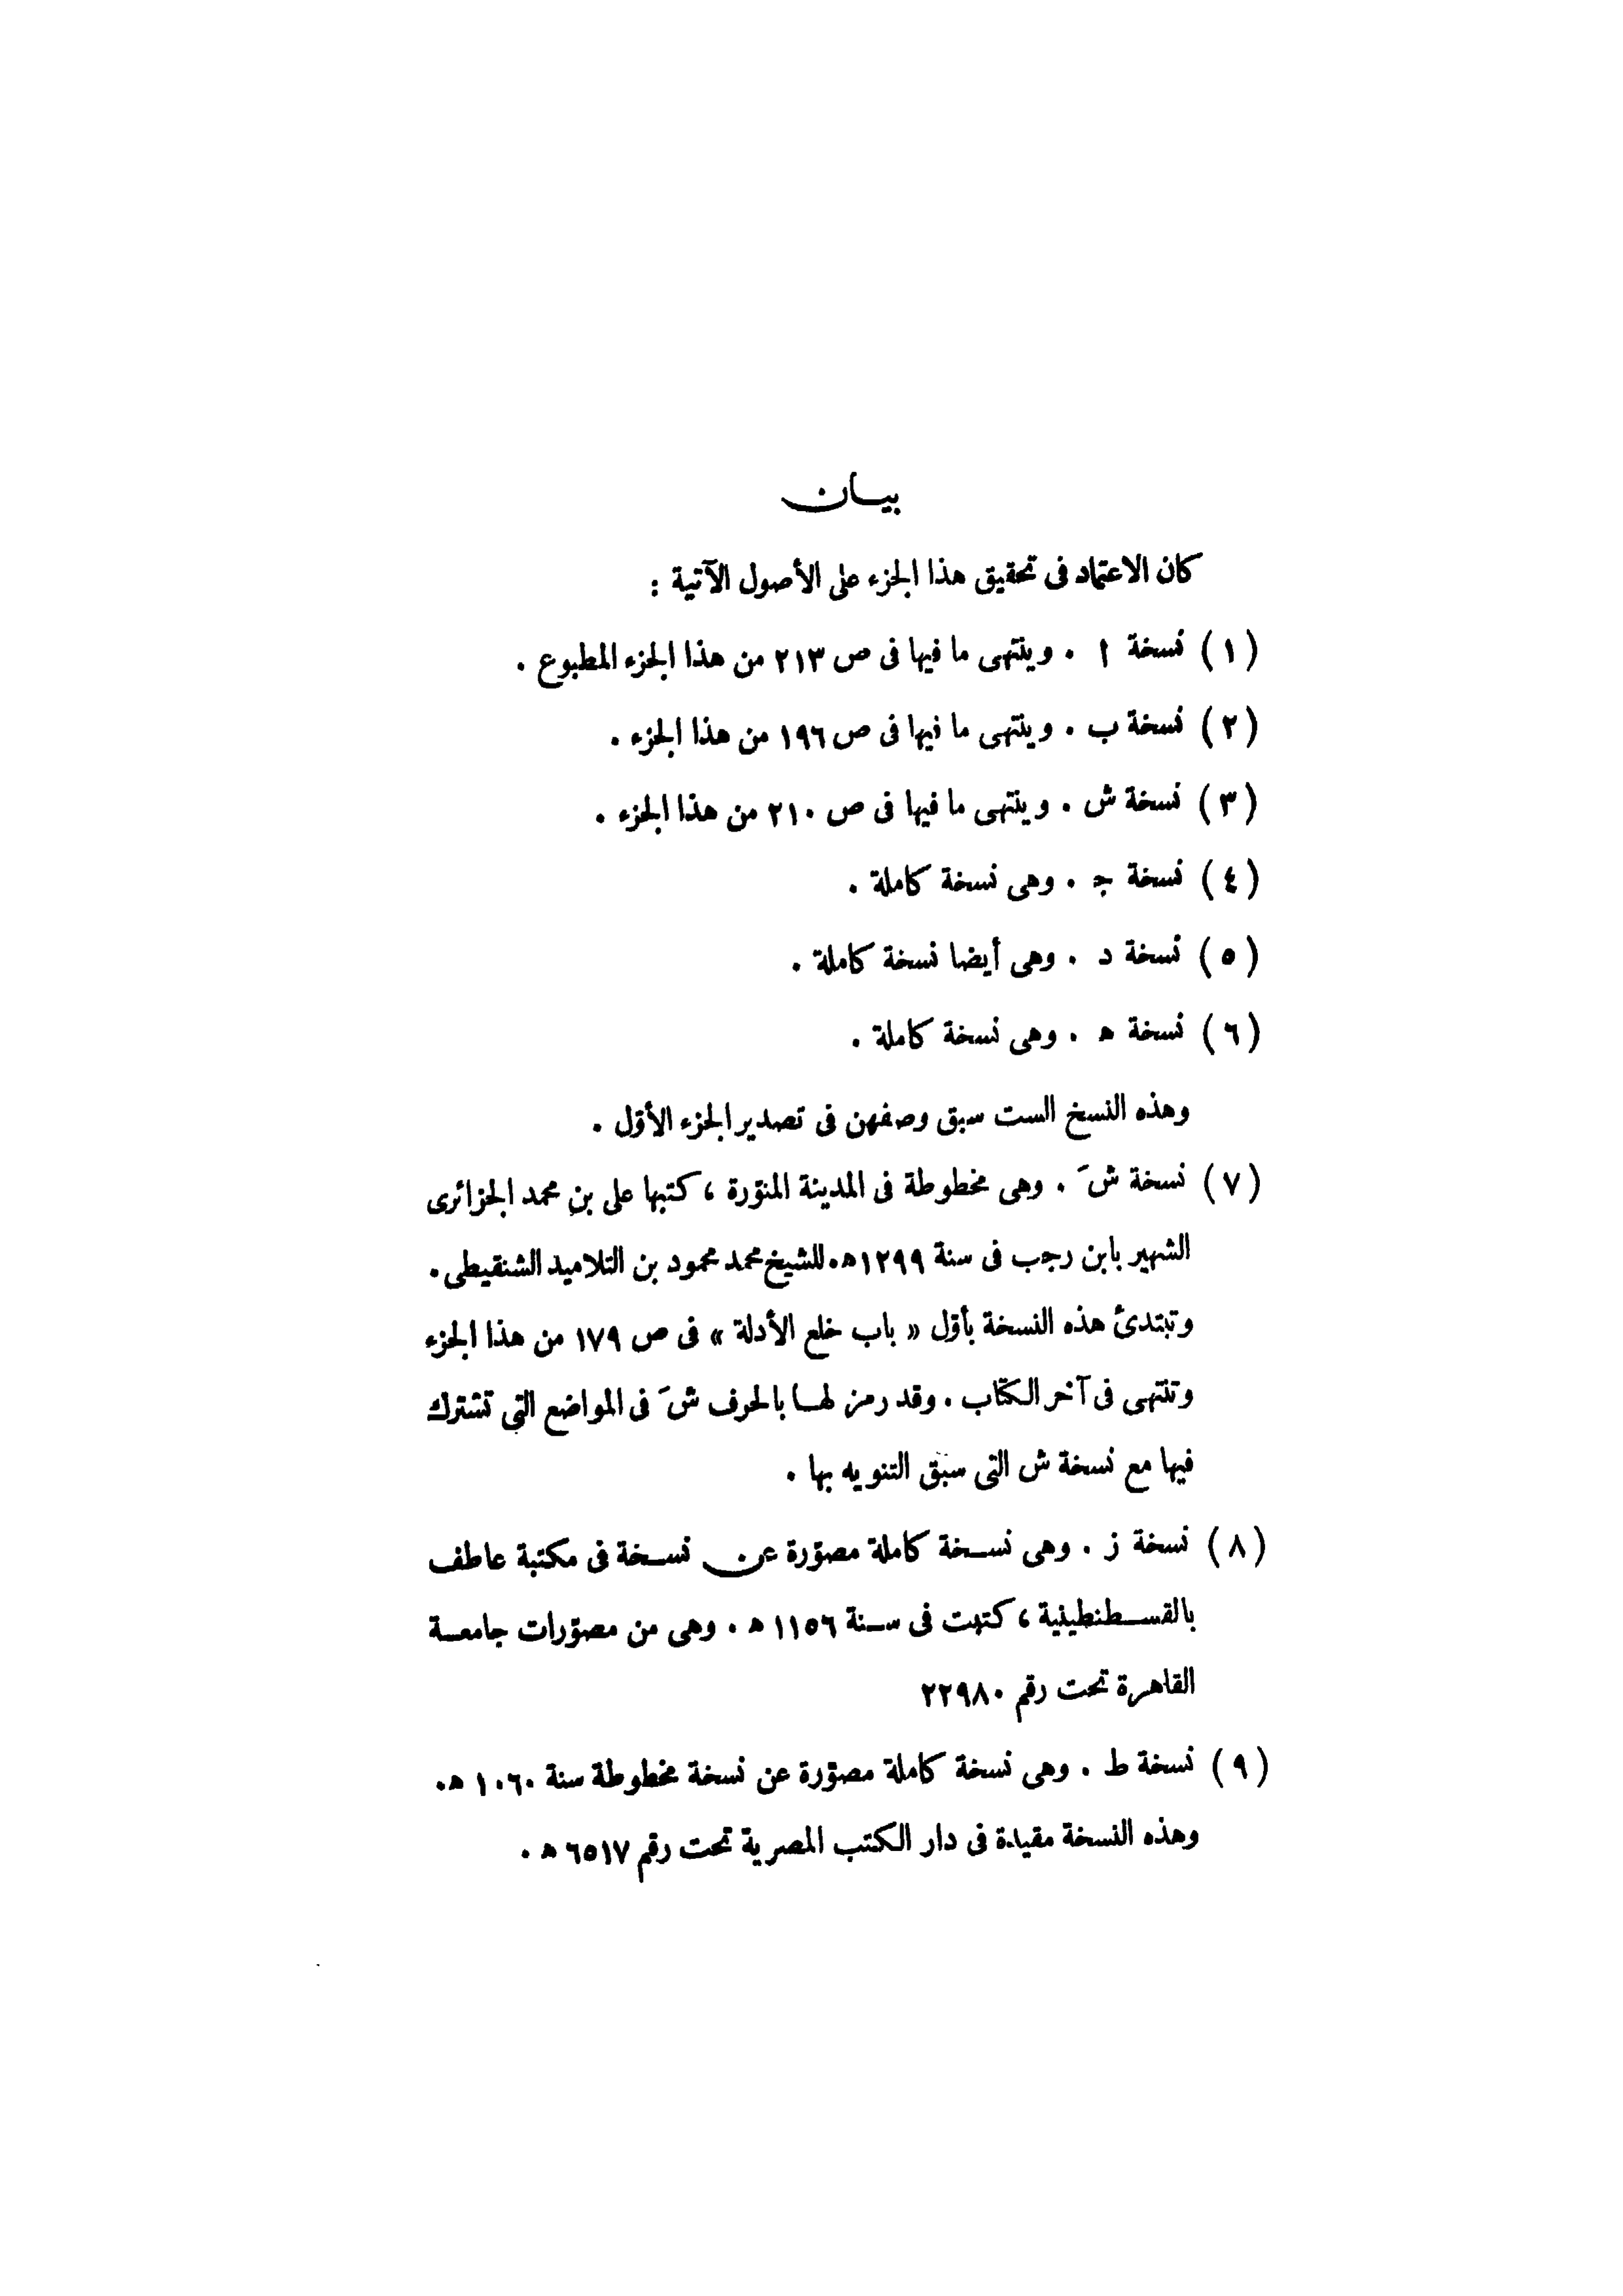 بيــان
كان الاعتماد فى تحقيق هذا الجزء على الأصول الآتية :
(١) نسخة ا . وينتهى ما فيها فى ص ٢١٣ من هذا الجزء المطبوع .
(٢) نسخة ب . وينتهى ما فيها فى ص ١٩٦ من هذا الجزء .
(٣) نسخة ش . وينتهى ما فيها فى ص ٢١٠ من هذا الجزء .
(٤) نسخة جـ . وهى نسخة كاملة .
(٥) نسخة د . وهى أيضا نسخة كاملة .
(٦) نسخة هـ . وهى نسخة كاملة .
وهذه النسخ الست سبق وصفهن فى تصدير الجزء الأوّل .
(٧) نسخة شَ . وهى مخطوطة فى المدينة المنوّرة ، كتبها على بن محمد الجزائرى
الشهير بابن رجب فى سنة ١٢٩٩هـ. للشيخ محمد محمود بن التلاميد الشنقيطى .
وتبتدئ هذه النسخة بأوّل « باب خلع الأدلة » فى ص ١٧٩ من هذا الجزء
وتنتهى فى آخر الكتاب . وقد رمز لهــا بالحرف شَ فى المواضع التى تشترك
فيها مع نسخة ش التى سبق التنويه بها .
(٨) نسخة ز . وهى نســخة كاملة مصوّرة عن نســخة فى مكتبة عاطف
بالقســطنطينية ، كتبت فى ســنة ١١٥٦ هـ . وهى من مصوّرات جامعــة
القاهرة تحت رقم ٢٢٩٨٠
(٩) نسخة ط . وهى نسخة كاملة مصوّرة عن نسخة مخطوطة سنة ١٠٦٠ هـ.
وهذه النسخة مقيدة فى دار الكتب المصرية تحت رقم ٦٥١٧ هـ .